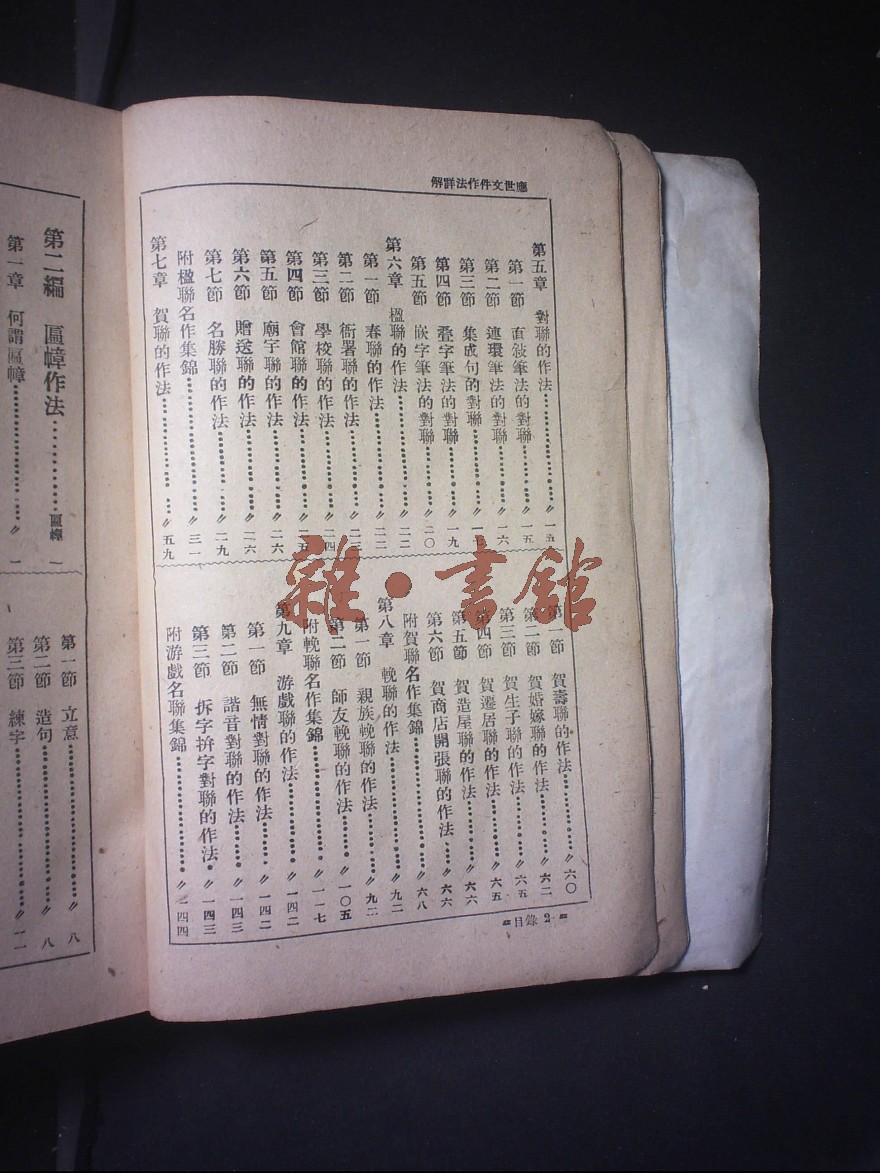 應世文件作法詳解
第五章 對聯的作法…………〃一五
第一節 直敍筆法的對聯……〃一五
第二節 連環筆法的對聯……〃一六
第三節 集成句的對聯………〃一七
第四節 疊字筆法的對聯……〃一九
第五節 嵌字筆法的對聯……〃二〇
第六章 楹聯的作法…………〃二二
第一節 春聯的作法…………〃二二
第二節 衙署聯的作法………〃二三
第三節 學校聯的作法………〃二四
第四節 會館聯的作法………〃二五
第五節 廟宇聯的作法………〃二六
第六節 贈送聯的作法………〃二六
第七節 名勝聯的作法………〃二九
附楹聯名作集錦……………〃三一
第七章 賀聯的作法…………〃五九
第一節 賀壽聯的作法………〃六〇
第二節 賀婚嫁聯的作法……〃六二
第三節 賀生子聯的作法……〃六五
第四節 賀遷居聯的作法……〃六五
第五節 賀造屋聯的作法……〃六六
第六節 賀商店開張聯的作法…〃六六
附賀聯名作集錦……………〃六八
第八章 輓聯的作法…………〃九二
第一節 親族輓聯的作法……〃九二
第二節 師友輓聯的作法……〃一〇五
附輓聯名作集錦……………〃一一七
第九章 游戲聯的作法………〃一四二
第一節 無情對聯的作法……〃一四二
第二節 諧音對聯的作法……〃一四三
第三節 拆字拚字對聯的作法…〃一四三
附游戲名聯集錦……………〃一四四
目錄 2
第二編 匾幛作法…………匾幛 一
第一章 何謂匾幛……………〃 一
第一節 立意…………………〃 八
第二節 造句…………………〃 八
第三節 練字…………………〃一一
雜·書館